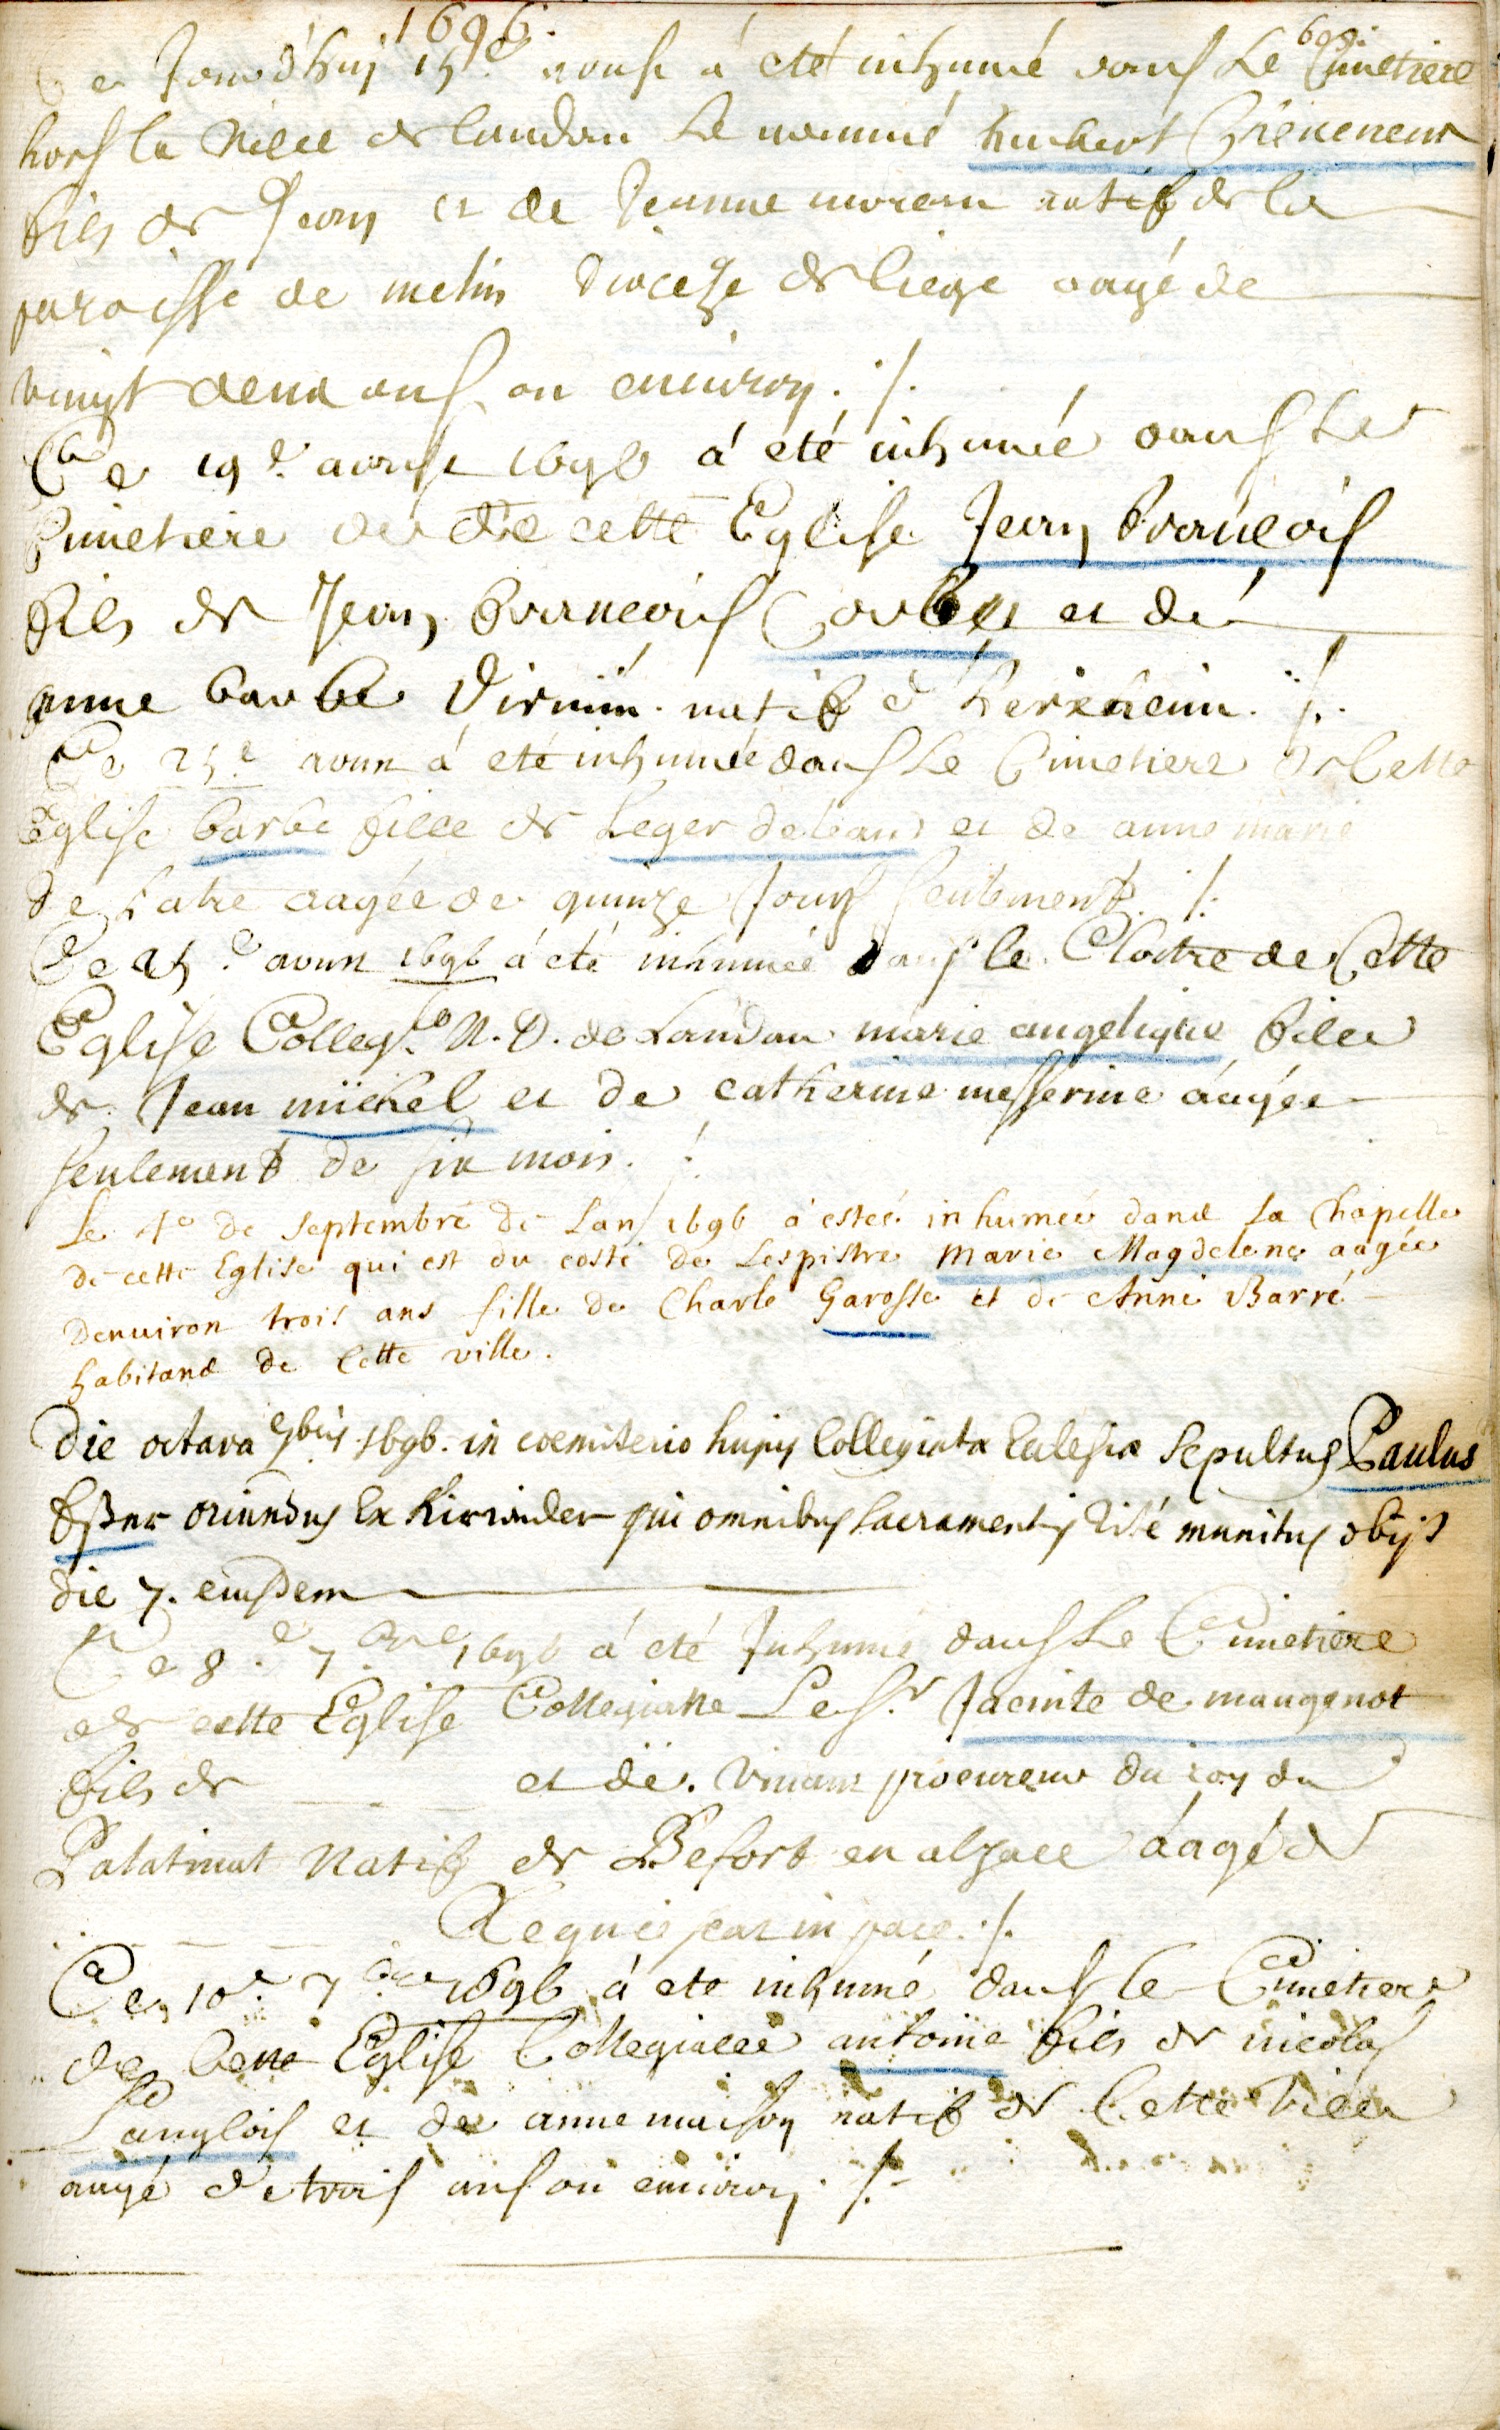 1696.
Ce Jourd'huy 15.e aoust á eté inhumé dans Le Cimetiere
hors la Ville de landau le nommé humbert
fils de Jean et de Jeanne moreau natif de la
paroisse de melin diocese de liege aagé de
vingt deux ans ou environ. ./.
Ce 19.e aoust 1696 á eté inhumé dans Le
Cimetiere de cette Eglise Jean francois
fils de Jean francois et de
anne barbe Virnin natif d'herxheim. ./.
Ce 25.e aoust á eté inhumée dans Le Cimetiere de Cette
Eglise barbe fille de Leger deleau et de anne marie
de Latre aagée de quinze Jours seulement ./.
Ce 25.e aoust 1696 á eté inhumée dans le Cloitre de Cette
Eglise Colleg.e N. D. de Landau marie angelique fille
de Jean michel et de catherine messerine áagée
seulement de six mois. ./.
Le 4e de Septembre de Lan 1696 a estée inhumée dans La Chapelle
de cette Eglise qui est du costé de Lespistre Marie Magdelene aagée
denuiron trois ans fille de Charle Garosse et de Anne Barré
habitans de Cette ville.
Die octava 7bris 1696. in coemiterio hujus Collegiatæ Eclesiæ Sepultus Paulus
oriundus Ex Kirwiler qui omnibus sacramentis rité munitus obijt
die 7. eiusdem
Ce 8.e 7.bre 1696 á eté Inhumé dans Le Cimetiere
de cette Eglise Collegialle Le S.r Jacinte de maugenot
fils de et de. Vivant procureur du roy du
Palatinat Natif de Béfort en alsace áagé de
Requiescat in pace ./.
Ce 10.e 7.bre 1696 á eté inhumé dans le Cimetiere
de Cette Eglise Collegialle antoine fils de nicolas
Langlois et de anne maison natif de Cette Ville
aagé de trois ans ou environ ./.